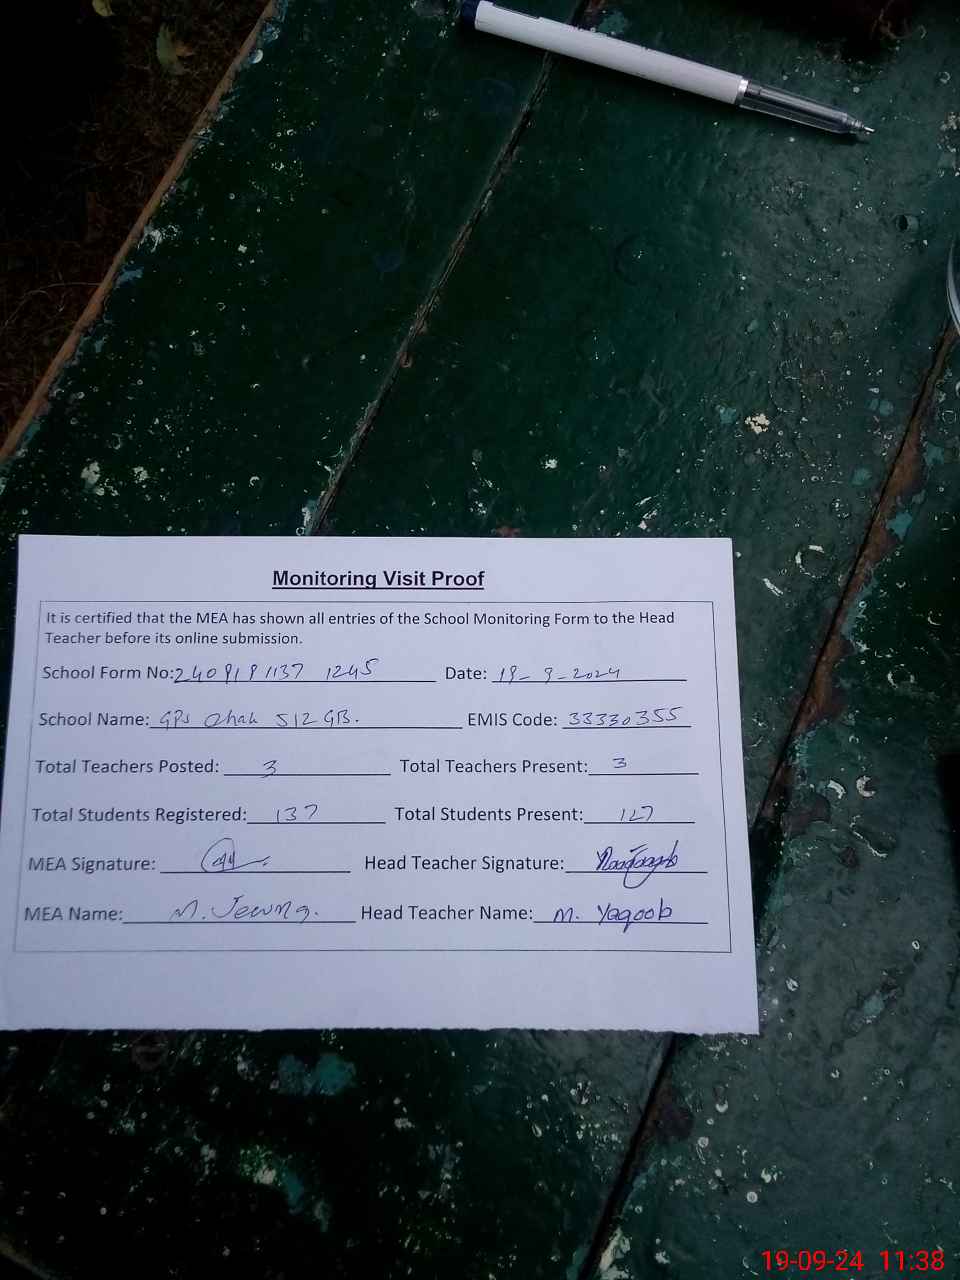 Monitoring Visit Proof
It is certified that the MEA has shown all entries of the School Monitoring Form to the Head
Teacher before its online submission.
School Form No: 240919 1137 1245 Date: 19-9-2024
School Name: GPS Chak 512 GB. EMIS Code: 33330355
Total Teachers Posted: 3 Total Teachers Present: 3
Total Students Registered: 137 Total Students Present: 127
MEA Signature: Head Teacher Signature:
MEA Name: M. Head Teacher Name: M. Yaqoob
19-09-24 11:38